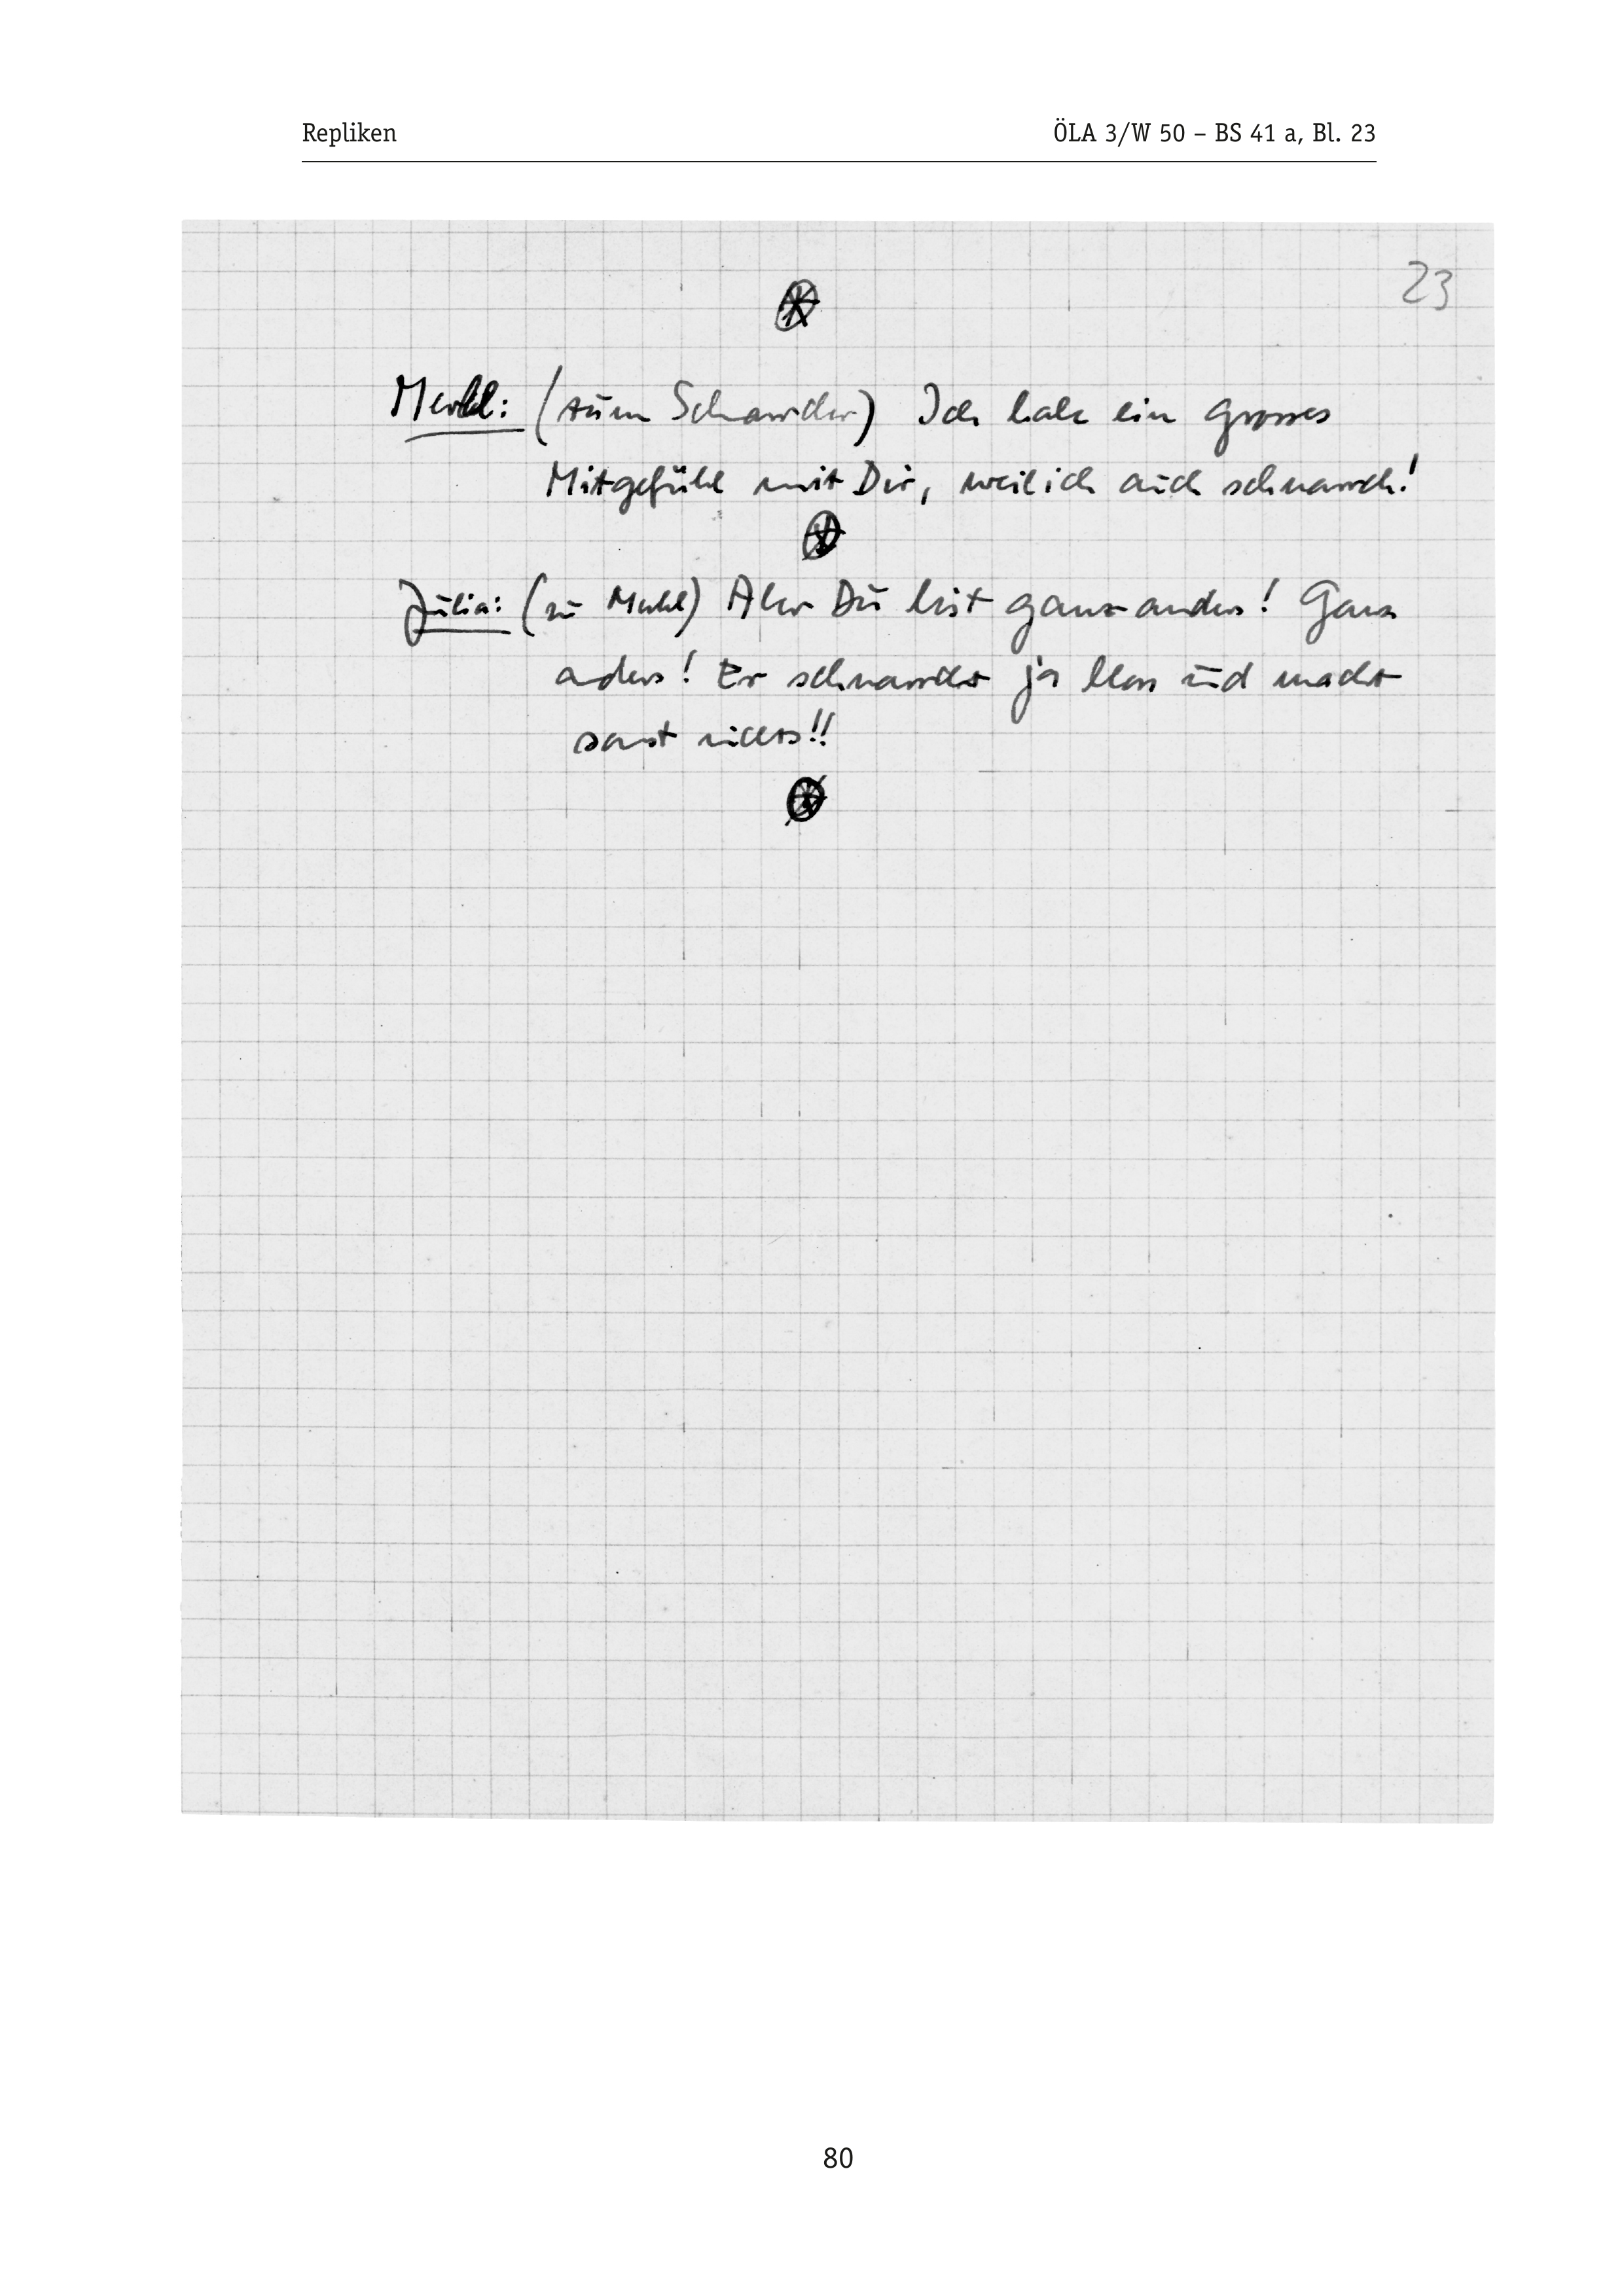 Repliken ÖLA 3/W 50 – BS 41 a, Bl. 23
23
(zum Schnarcher) Ich habe ein grosses
Mitgefühl mit Dir, weil ich auch schnarch!
Julia: (zu Merkl) Aber Du bist ganz anders! Ganz
anders! Er schnarcht ja bloss und macht
sonst nichts!!
80